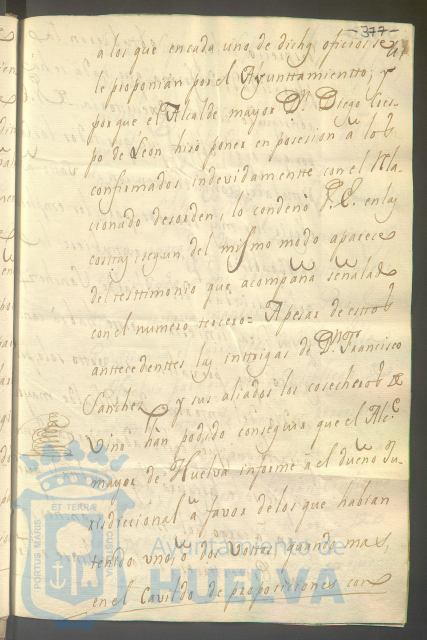 -377-
a los que encada uno de dichos oficios se
le proponian por el Ayunttamientto; y
porque el Alcalde mayor Dn. Diego Cres-
po de Leon hizo poner en posesion â lo
confirmados indevidamentte con el Rla-
cionado desorden, lo condenò V.E. en las
costas, segun del mismo modo aparece
del testtimonio que acompaña señalado
con el numero tercero= Apesar de esttos
antecedenttes las inttrigas de Dn. Francisco
Sanchez y sus aliados los cosecheros de
Vino hàn podido conseguir que el Alce.
mayor de Huelva informe â el dueño Ju-
risdiccional â favor de los que habian
tenido uno, ô dos vottos quando mas,
en el Cavildo de proposiciones con
ET TERRÆ
PORTUS MARIS
CUSTODIA
Ayuntamiento de
HUELVA